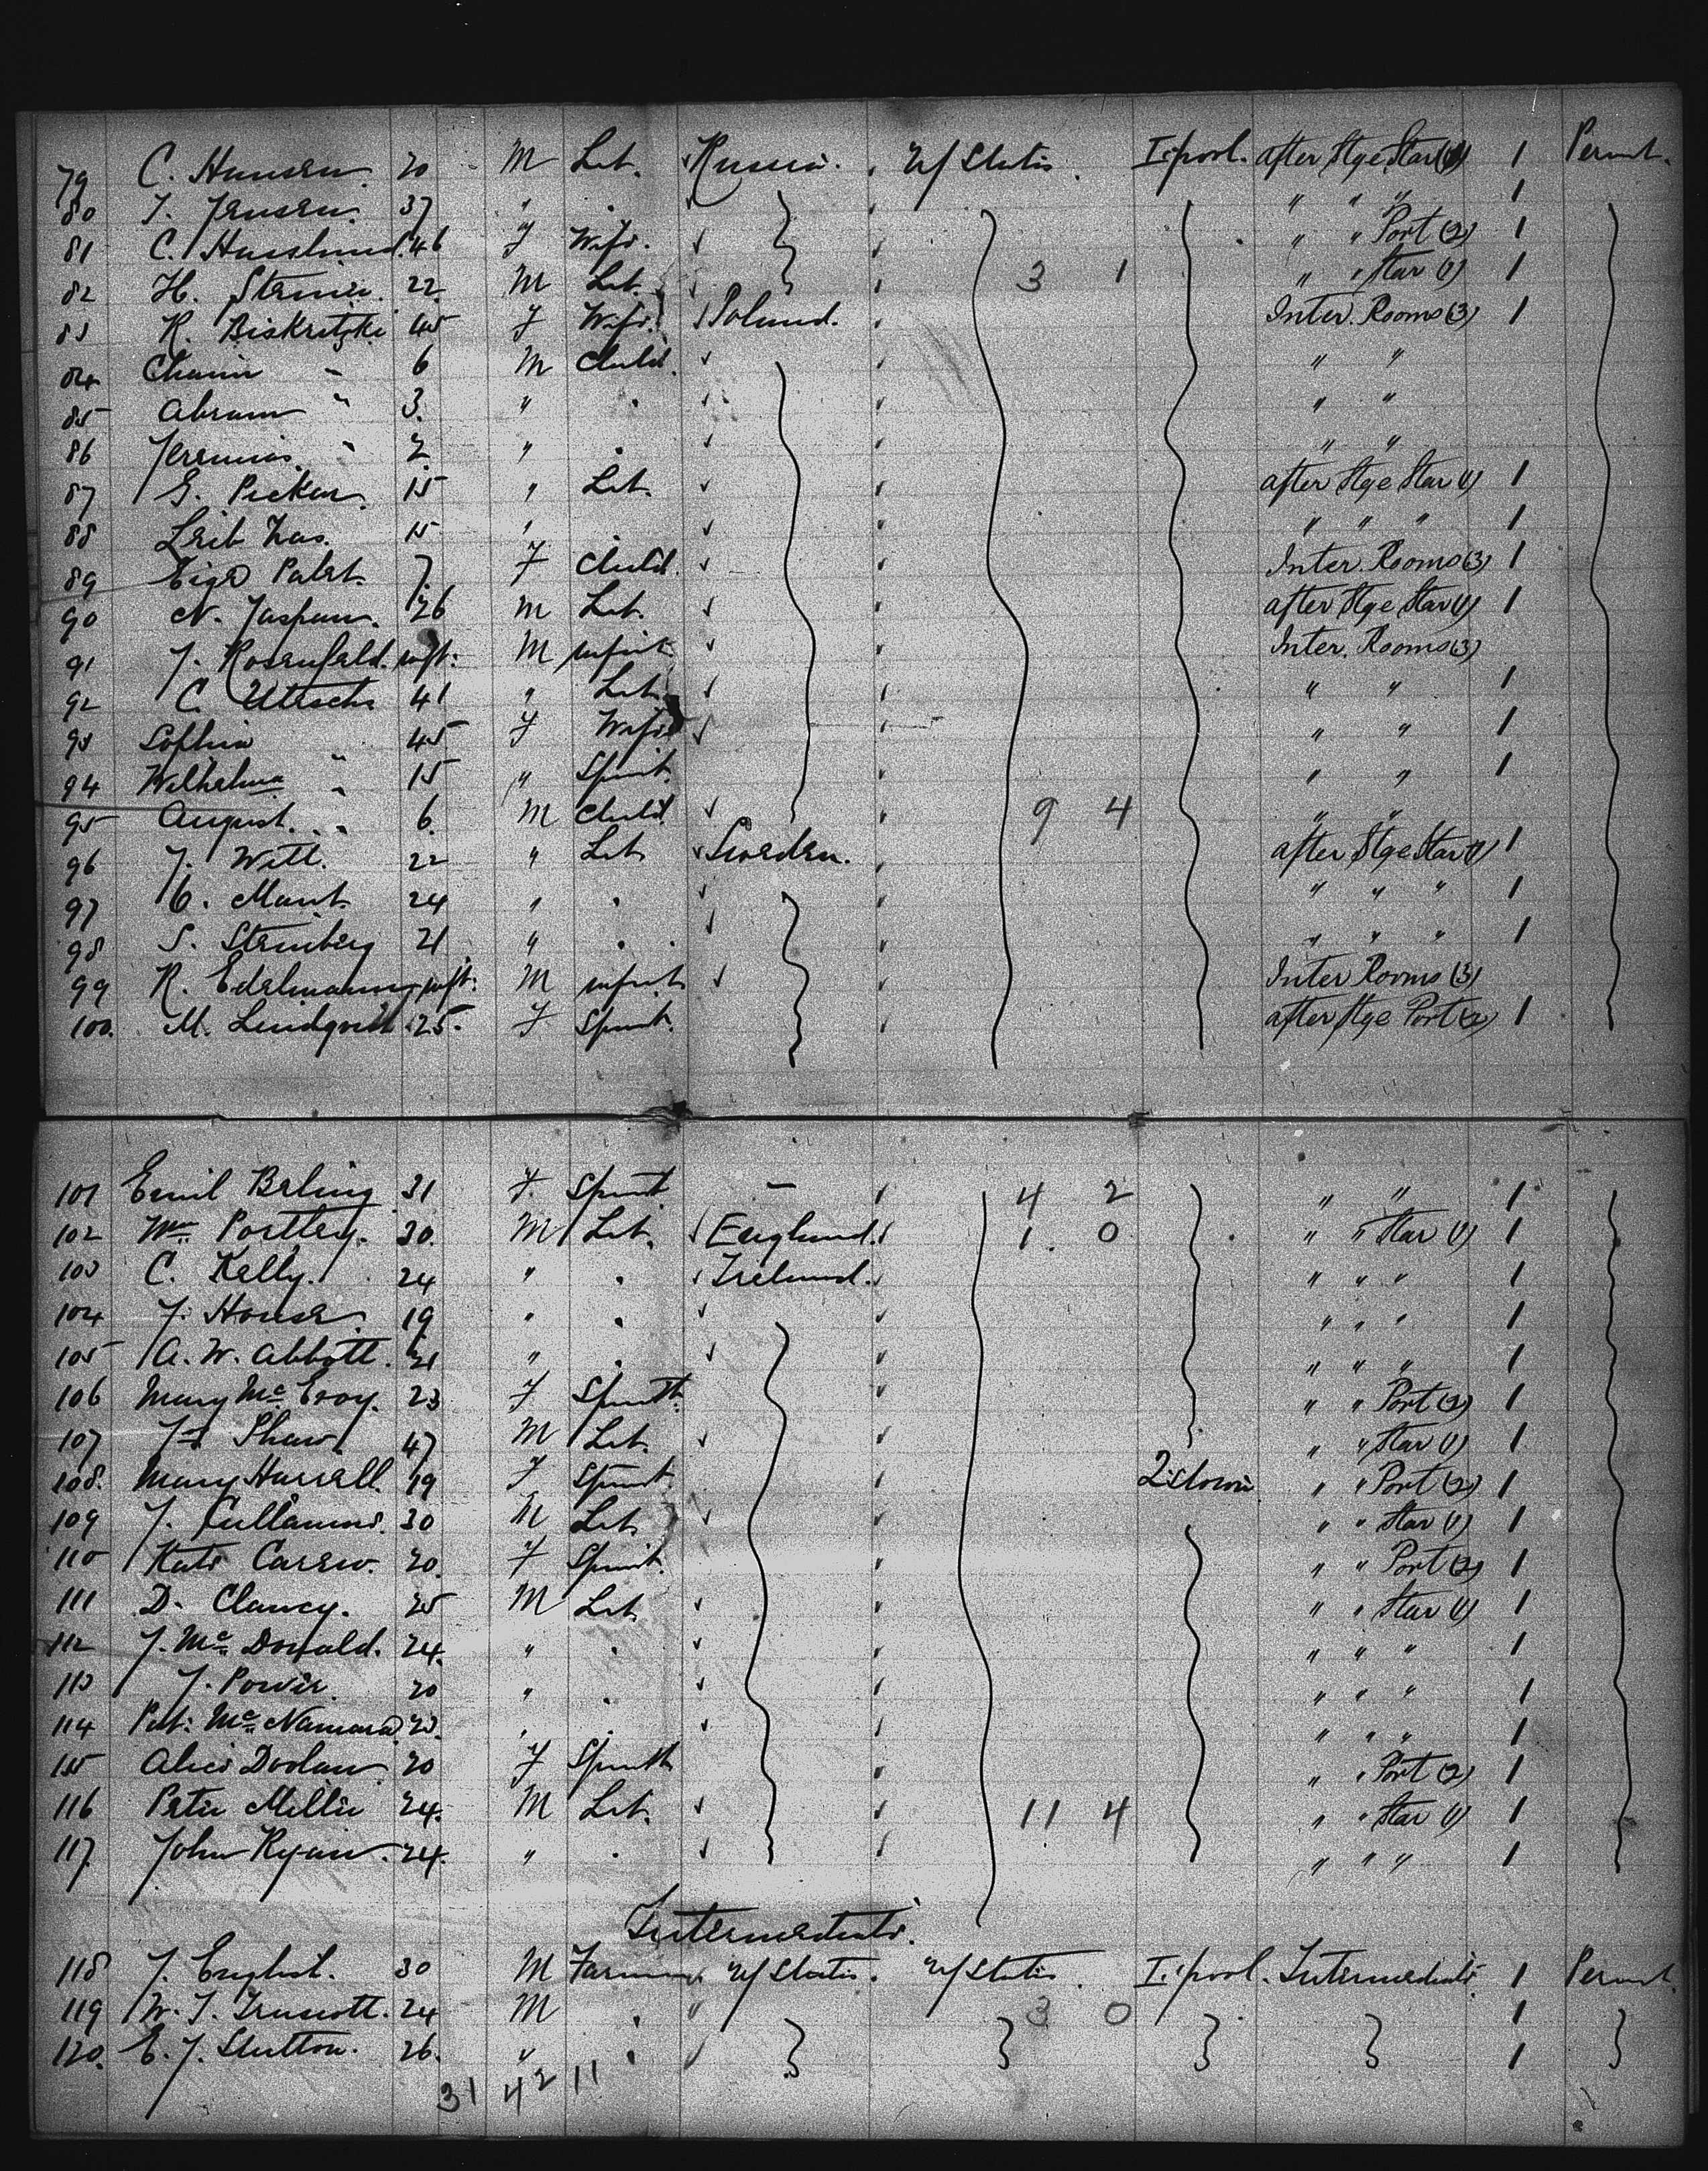 79 C. Hansen. 20 M Lab. Russia. U/States. L'pool. after Stge Star (1) 1 Permt.
80 J. Jensen. 37 " . " " " 1
81 C. Hasslund. 46 F Wife. " " Port (2) 1
82 H. 22 M Lab. 3 1 " " Star (1) 1
83 R. Biskritzki 45 F Wife. Poland. Inter. Rooms (3) 1
84 Chaim " 6 M Child. " "
85 Abram " 3. " . " "
86 Jeremias " 2 " . " "
87 S. 15 " Lab. after Stge Star (1) 1
88 Leib 15 " " " " 1
89 7. F Child. Inter. Rooms (3) 1
90 N. Jaspan. 26 M Lab. after Stge Star (1) 1
91 J. Rosenfeld. inft. M infant Inter. Rooms (3)
92 C. 41 " Lab. " " 1
93 Sophia " 45 F Wife " " 1
94 Wilhelma " 15 " Spinst. " " 1
95 August. " 6. M Child. 9 4 " "
96 J. Witt. 22 " Lab Sweden. after Stge Star (1) 1
97 24 " . " " " 1
98 S. Steinberg 21 " . " " " 1
99 R. Edelmann inft. M infant Inter Rooms (3)
100. M. Lindqvist 25. F Spinst. after Stge Port (2) 1
101 Emil Beling 31 F. Spinst - 4 2 " " 1
102 Wm Portley. 30. M Lab. England. 1. 0 " " Star (1) 1
103 C. Kelly. 24 " . Ireland. " " " 1
104 J. House. 19 " . " " " 1
105 A. W. Abbott. 21 " . " " " 1
106 Mary Mc Evoy. 23 F Spinst. " " Port (2) 1
107 Js Shaw. 47 M Lab. " " Star (1) 1
108. Mary Harrell. 19 F Spinst. Q'stown " " Port (2) 1
109 J. 30 M Lab " " Star (1) 1
110 Kate Carew. 20. F Spinst. " " Port (2) 1
111 D. Clancy. 25 M Lab " " Star (1) 1
112 J. Mc Donald. 24. " . " " " 1
113 J. Power. 20 " . " " " 1
114 Pat: Mc Namara " . " " " 1
115 Alice Doolan 20 F Spinst " " Port (2) 1
116 Peter 24. M Lab. 11 4 " " Star (1) 1
117. John Ryan. 24. " . " " " 1
Intermediate.
118 J. English. 30 M Farmer U/States. U/States. L'pool. Intermediate 1 Permt.
119 W. J. Truscott. 24 M . " 3 0 1
120. E. J. Stutton. 26. " . " 1
31 42 11